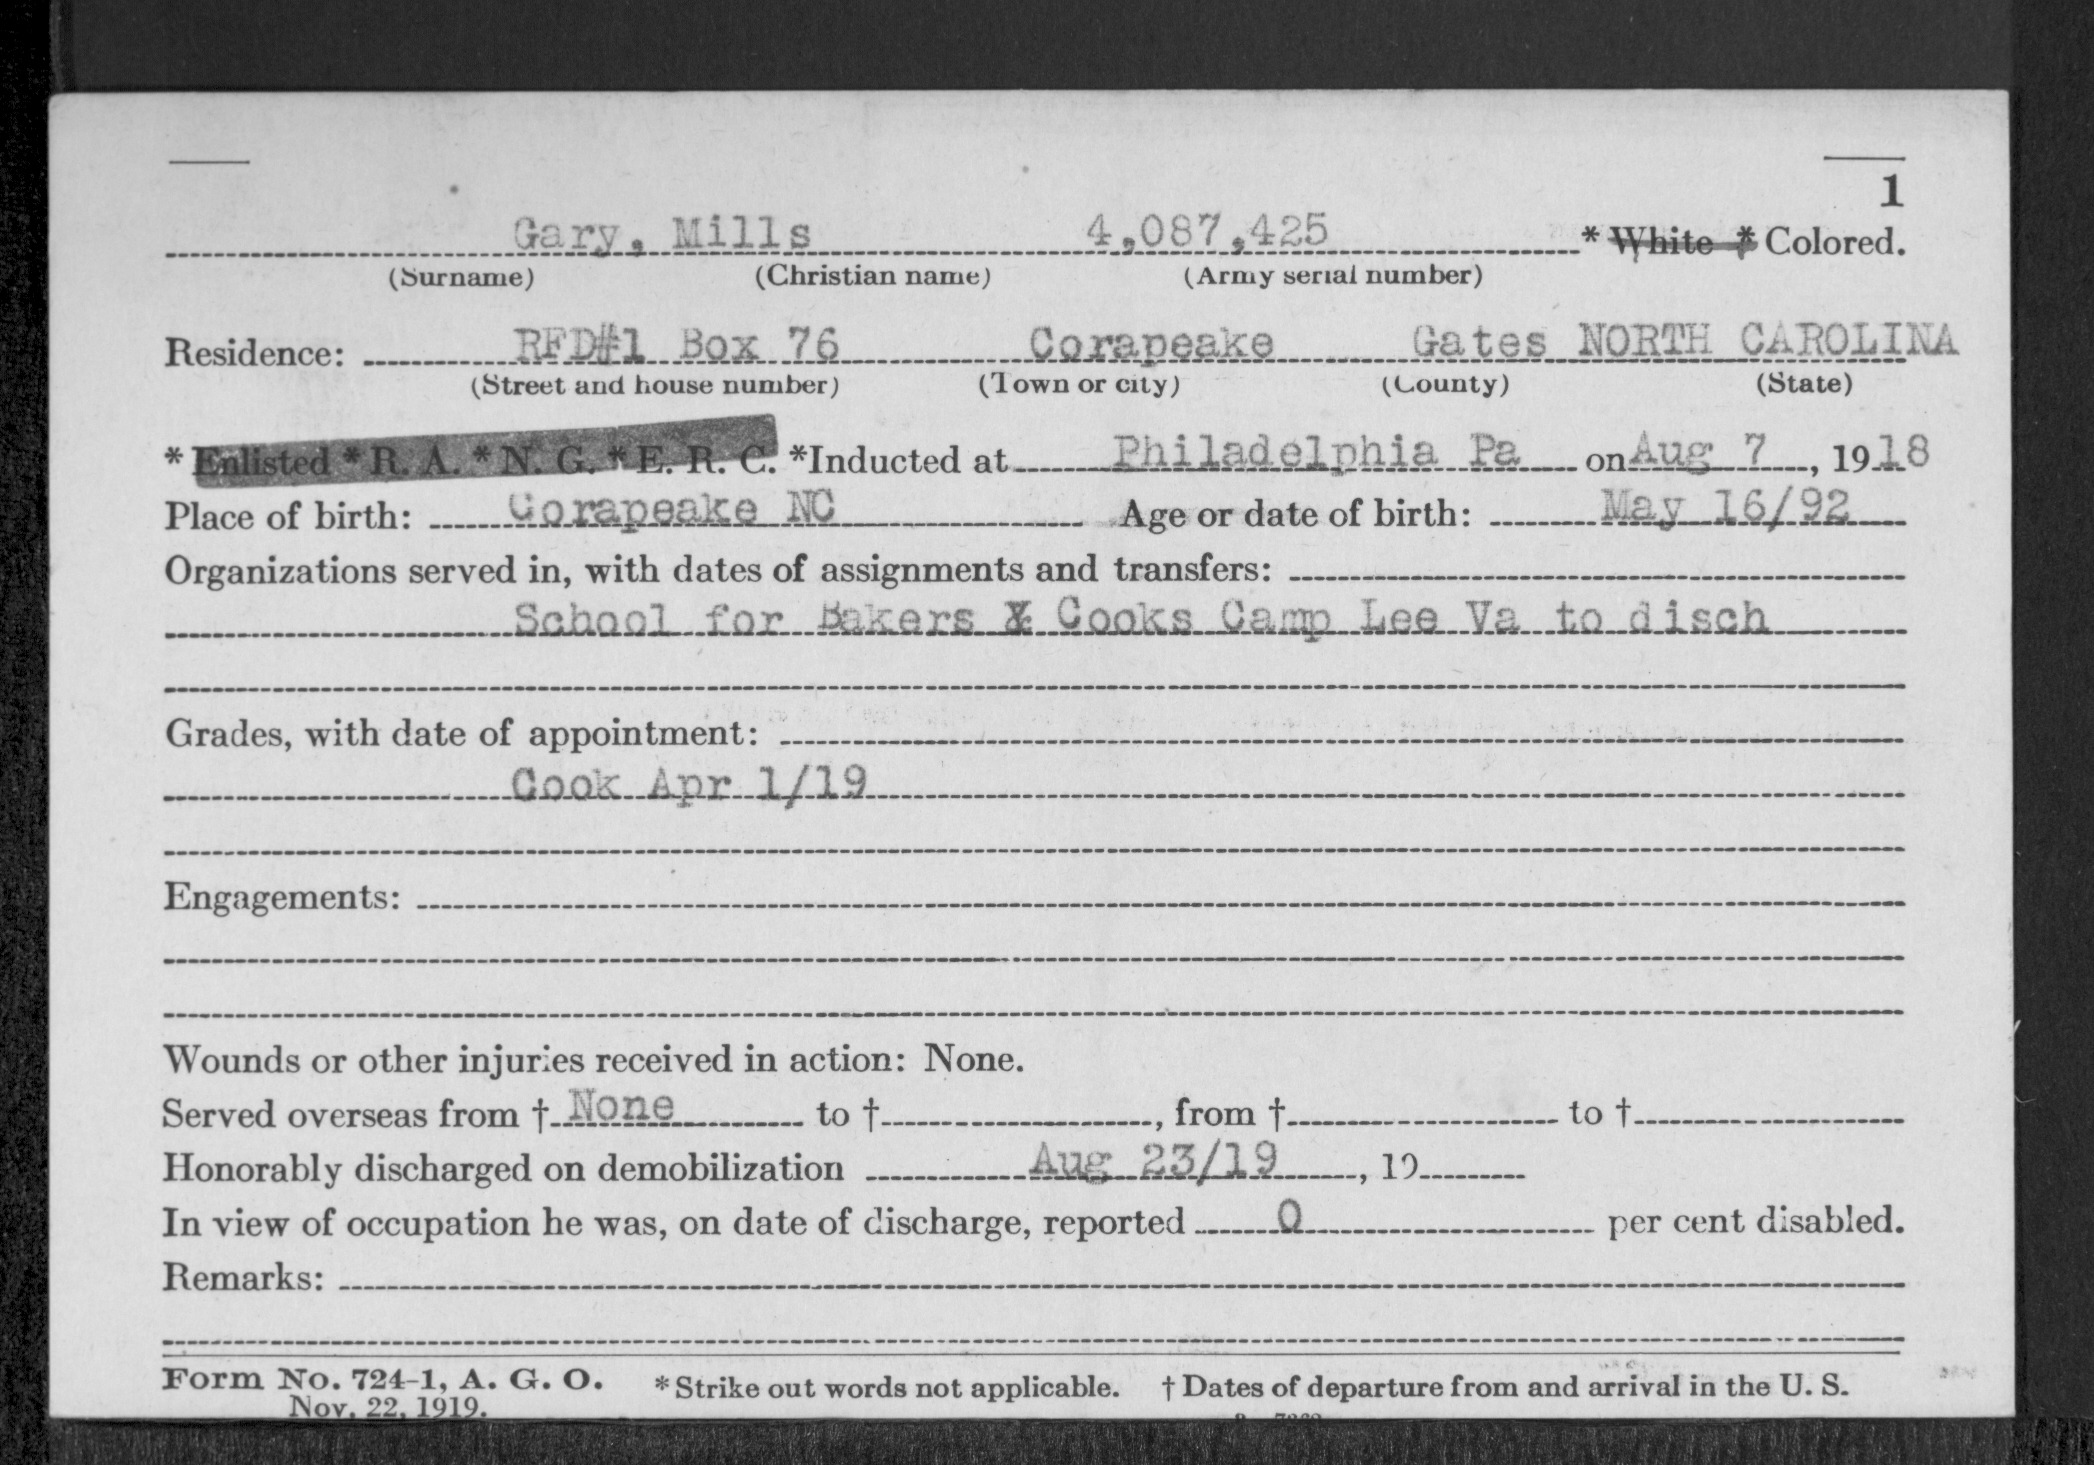 1
Gary, Mills 4,087,425 * White * Colored.
(Surname) (Christian name) (Army serial number)
Residence: RFD#1 Box 76 Corapeake Gates NORTH CAROLINA
(Street and house number) (Town or city) (County) (State)
* Enlisted * R. A. * N. G. * E. R. C. *Inducted at Philadelphia Pa on Aug 7, 1918
Place of birth: Corapeake NC Age or date of birth: May 16/92
Organizations served in, with dates of assignments and transfers:
School for Bakers & Cooks Camp Lee Va to disch
Grades, with date of appointment:
Cook Apr 1/19
Engagements:
Wounds or other injuries received in action: None.
Served overseas from † None to †, from † to †
Honorably discharged on demobilization Aug 23/19, 19
In view of occupation he was, on date of discharge, reported 0 per cent disabled.
Remarks:
Form No. 724-1, A. G. O. * Strike out words not applicable. † Dates of departure from and arrival in the U. S.
Nov. 22, 1919.